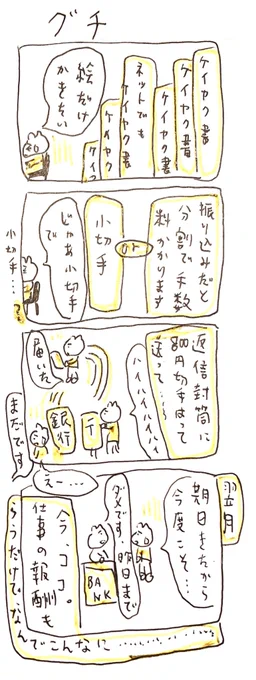 グチ
ケイヤク書
ケイヤク書
ケイヤク書
ネットでも
ケイヤク書
ケイヤク
ケイヤク
絵だけ
かきたい
振り込みだと
分割で手数
料かかります
小切手
じゃあ小切手
で
小切手…
返信封筒に
800円切手はって
送って……
ハイハイハイハイ
届いた
銀行
まだです
えー…
翌月
期日きたから
今度こそ…
ダメです、明日まで
BANK
今、ココ。
仕事の報酬も
らうだけで、なんでこんなに…………